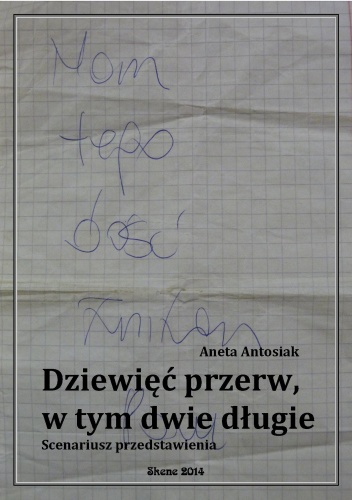 Mom
tego
dość
Aneta Antosiak
Dziewięć przerw,
w tym dwie długie
Scenariusz przedstawienia
Skene 2014